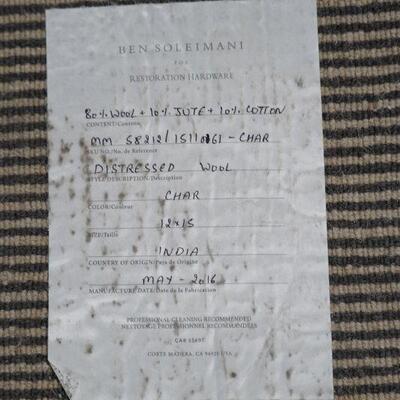 BEN SOLEIMANI
FOR
RESTORATION HARDWARE
80% WOOL + 10% JUTE + 10% COTTON
CONTENT/Contenu
MM 58212/15110161 - CHAR
SKU NO./No. de Reference
DISTRESSED WOOL
STYLE DESCRIPTION/Description
CHAR
COLOR/Couleur
12x15
SIZE/Taille
INDIA
COUNTRY OF ORIGIN/Pays de Origine
MAY - 2016
MANUFACTURE DATE/Date de la Fabrication
PROFESSIONAL CLEANING RECOMMENDED
NETTOYAGE PROFESSIONNEL RECOMMANDEES
CORTE MADERA, CA 94925 USA